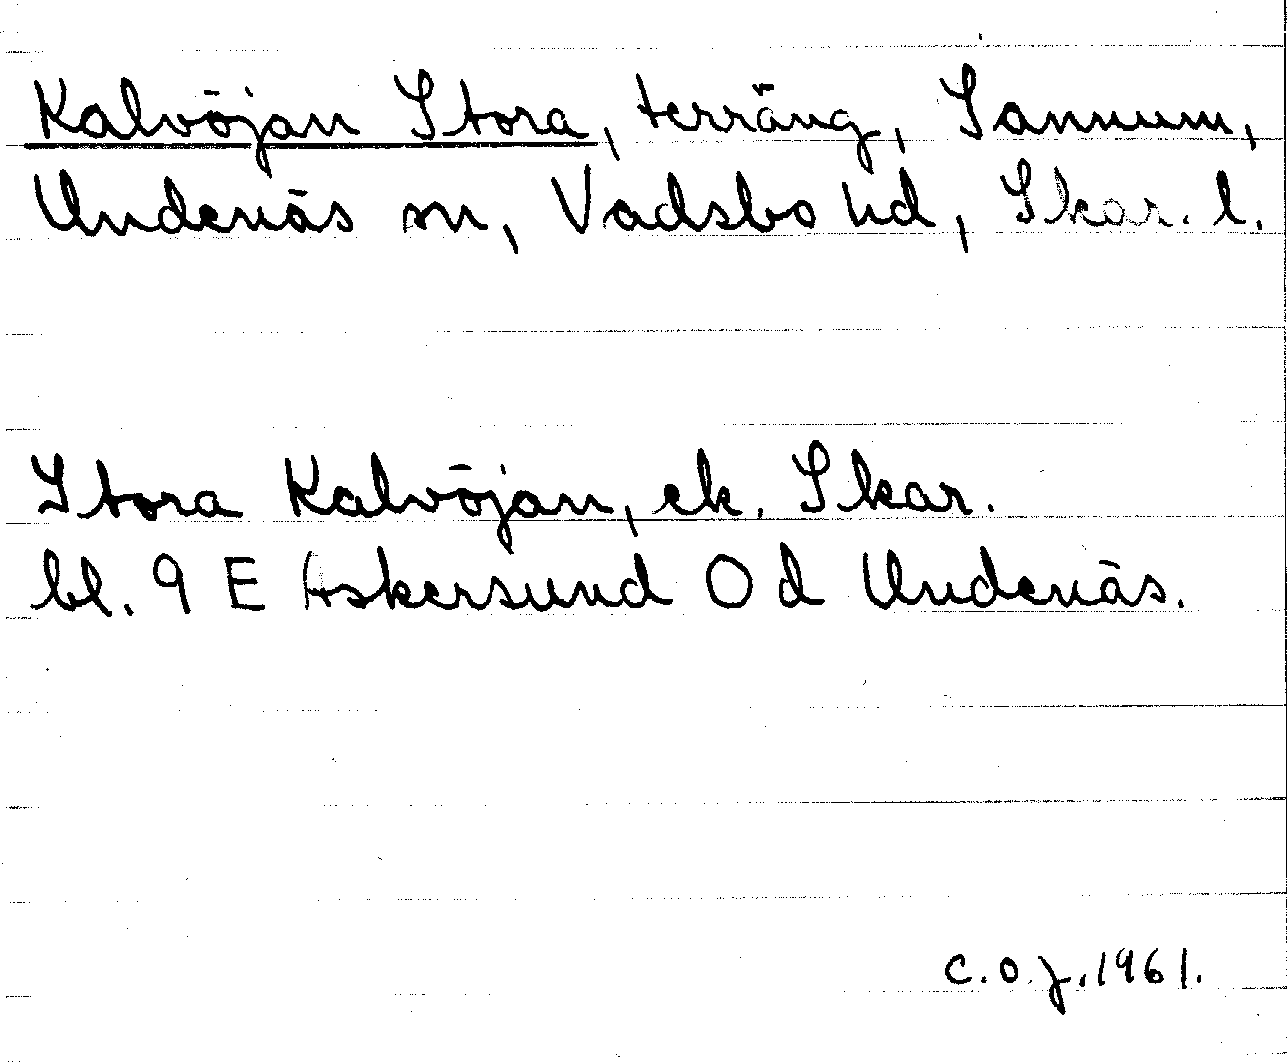 Kalvöjan Stora, terräng, Sannum,
Undenäs sn, Vadsbo hd, Skar. l.
Stora Kalvöjan, ek. Skar.
bl. 9 E Askersund O d Undenäs.
C.O.J. 1961.